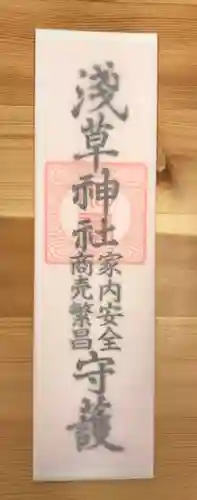 淺草神社
家内安全
商売繁昌
守護